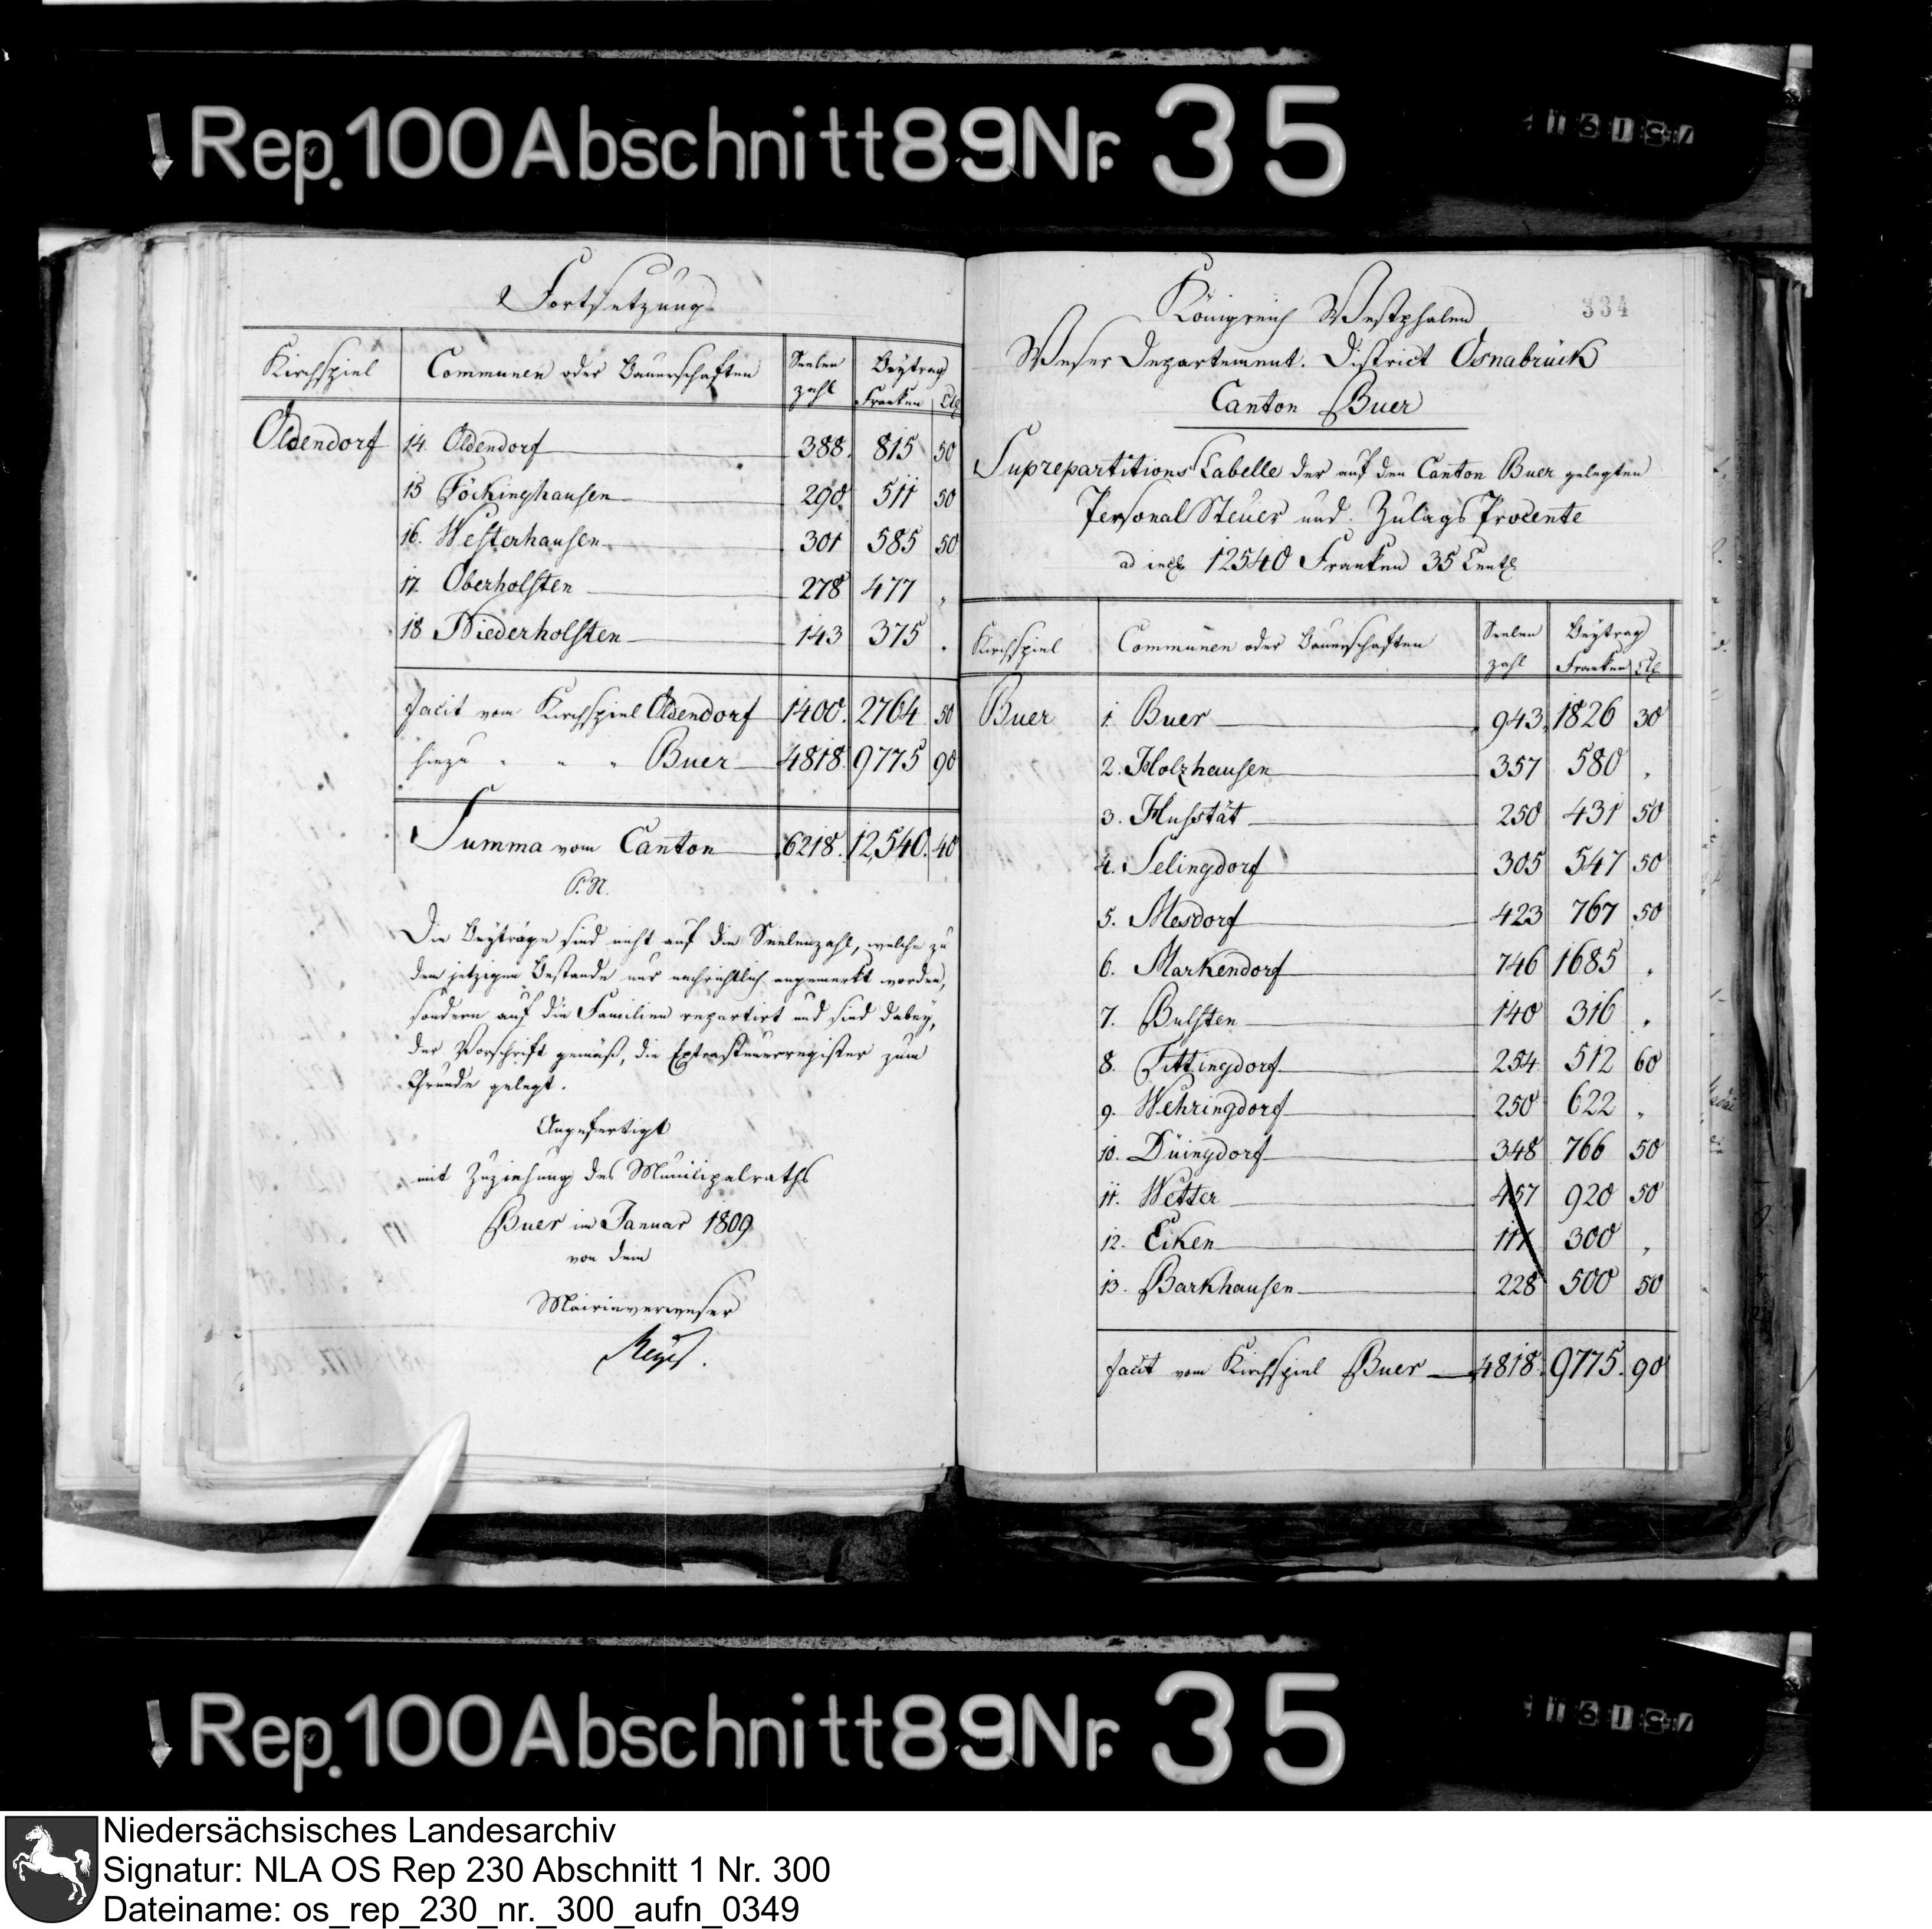 Rep. 100 Abschnitt 89 Nr. 35
Fortsetzung
Kirchspiel Communen oder Bauerschaften Seelen zahl Beytrag Franken Ct
Oldendorf 14. Oldendorf 388. 815 50
15 Föckinghausen 290. 511 50
16. Westerhausen 301 585 50
17. Oberholsten 278 477 „
18 Niederholsten 143 375 .
facit vom Kirchspiel Oldendorf 1400. 2764 50
hiezu " " " Buer 4818. 9775 90
Summa vom Canton 6218. 12,540. 40
P. N.
Die Beyträge sind nicht auf die Seelenzahl, welche zu
dem jetzigen Bestande nur nachrichtlich angemerkt worden,
sondern auf die Familien repartirt und sind dabey,
der Vorschrift gemäß, die Extrasteuerregister zum
Grunde gelegt.
Angefertigt
mit Zuziehung des Municipalraths
Buer im Januar 1809
von dem
Mairieverweser
Meyer.
334
Königreich Westphalen
Weser Departement. District Osnabrück
Canton Buer
Suprepartitions Tabelle der auf den Canton Buer gelegten
Personal Steuer und Zulags Procente
ad 12540 Franken 35 Cent
Kirchspiel Communen oder Bauerschaften Seelen zahl Beytrag Franken Ct
Buer 1. Buer 943. 1826 30
2. Holzhausen 357 580 „
3. Hustät 250 431 50
4. Selingdorf 305 547 50
5. Mesdorf 423 767 50
6. Markendorf 746 1685 „
7. Bulsten 140 316 „
8. Tittingdorf 254 512 60
9. Wehringdorf 250 622 „
10. Düingdorf 348 766 50
11. Wetter 457 920 50
12. Eiken 117 300 „
13. Barkhausen 228 500 50
facit vom Kirchspiel Buer 4818. 9775. 90
Rep. 100 Abschnitt 89 Nr. 35
Niedersächsisches Landesarchiv
Signatur: NLA OS Rep 230 Abschnitt 1 Nr. 300
Dateiname: os_rep_230_nr._300_aufn_0349